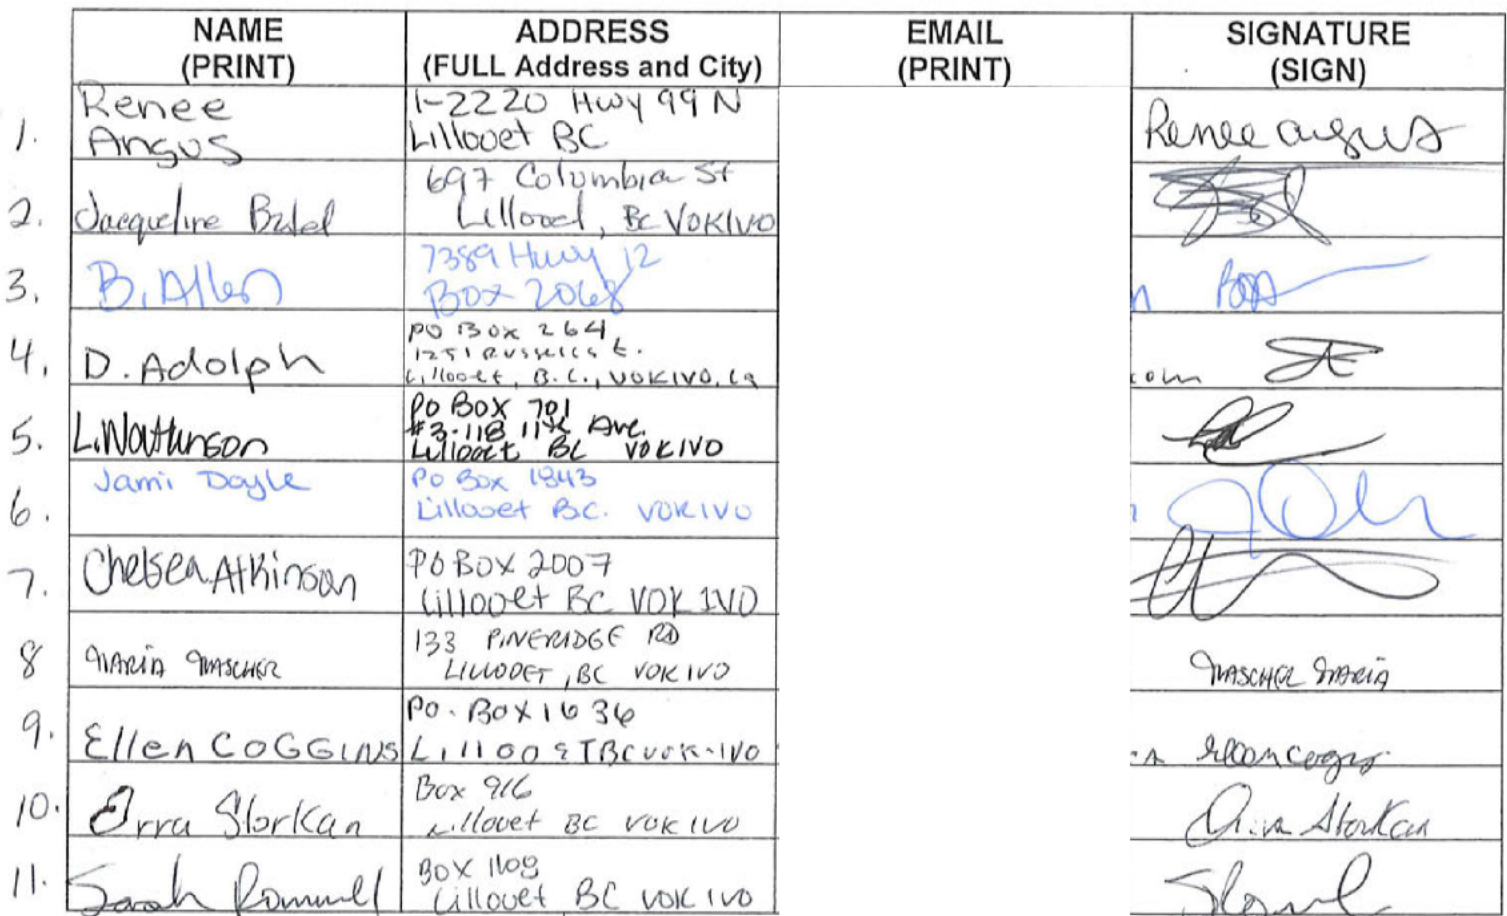 NAME (PRINT) ADDRESS (FULL Address and City) EMAIL (PRINT) SIGNATURE (SIGN)
1. Renee Angus 1-2220 Hwy 99 N Lillooet BC Renee angus
2. Jacqueline 697 Columbia St Lillooet, BC V0K1V0
3. B. Allen 7389 Hwy 12 Box 2068
4. D. Adolph PO Box 264, 1251 Lillooet, B.C., V0K1V0, Ca com
5. L. Watkinson PO BOX 701 #3-118 11th Ave. Lillooet BC V0K1V0
6. Jami Doyle PO Box 1843 Lillooet BC. V0K1V0
7. Chelsea Atkinson PO BOX 2007 Lillooet BC V0K 1V0
8 MARIA MASCHER 133 PINERIDGE RD LILLOOET, BC V0K1V0 MASCHER MARIA
9. Ellen COGGINS PO. BOX 1636 LillooET BC V0K-1V0
10. Storkan Box 916 Lillooet BC V0K 1V0 Storkan
11. Sarah BOX Lillooet BC V0K 1V0